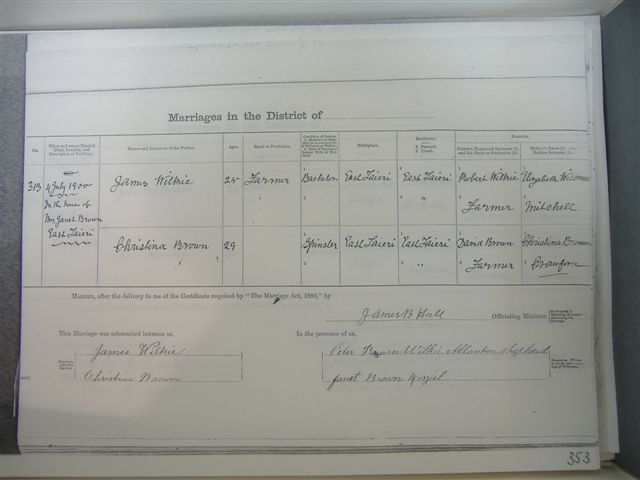 Marriages in the District of
No.
When and where Married.
Names and Surnames of the Parties.
Ages.
Rank or Profession.
Birthplace.
Residence.
1. Present.
2. Usual.
Parents.
Father's Name and Surname (1),
and his Rank or Profession (2).
Mother's Name (1).
Maiden Surname (2).
313
4 July 1900
In the house of
Mrs Janet Brown
East Taieri
James Wilkie
25
Farmer
1 Bachelor
East Taieri
1 East Taieri
1 Robert Wilkie
2 Farmer
1 Elizabeth
2 Mitchell
Christina Brown
29
1 Spinster
East Taieri
1 East Taieri
2 "
1 David Brown
2 Farmer
1 Christina
2
Married, after the delivery to me of the Certificate required by "The Marriage Act, 1880," by
James B Hall
Officiating Minister.
This Marriage was solemnized between us,
In the presence of us,
James Wilkie
Christina Brown
Peter Fraser Wilkie Allanton Shepherd
Janet Brown Mosgiel
353